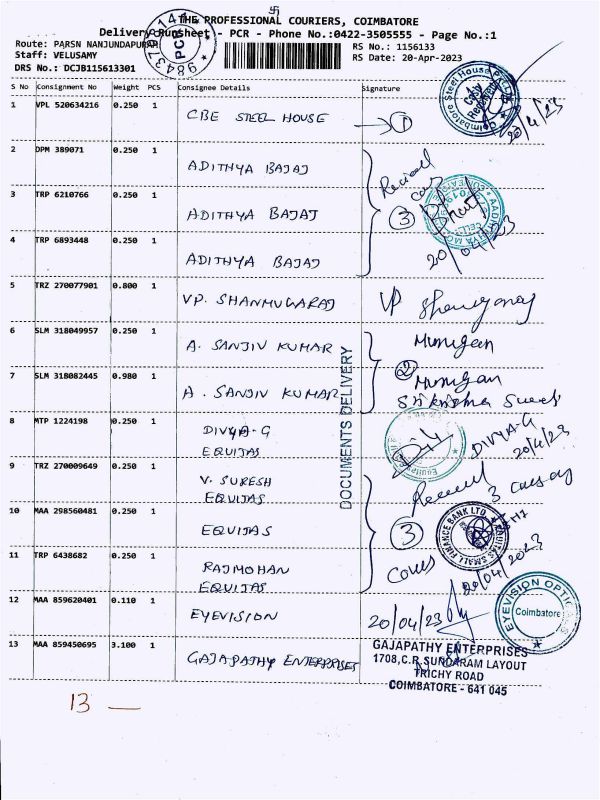 卐
THE PROFESSIONAL COURIERS, COIMBATORE
Delivery Runsheet - PCR - Phone No.:0422-3505555 - Page No.:1
Route: PARSN NANJUNDAPURAM
RS No.: 1156133
Staff: VELUSAMY
RS Date: 20-Apr-2023
DRS No.: DCJB115613301
PCR
S No Consignment No Weight PCS Consignee Details Signature
1 VPL 520634216 0.250 1 CBE STEEL HOUSE 1
Coimbatore Steel House
20/4/23
2 DPM 389071 0.250 1 ADITHYA BAJAJ
3 TRP 6210766 0.250 1 ADITHYA BAJAJ 3
4 TRP 6893448 0.250 1 ADITHYA BAJAJ 20/04/23
5 TRZ 270077901 0.800 1 VP. SHANMUGARAJ VP
6 SLM 318049957 0.250 1 A. SANJIV KUMAR Murugan
2
7 SLM 318082445 0.980 1 A. SANJIV KUMAR Murugan
Sri krishna Sweets
DOCUMENTS DELIVERY
8 MTP 1224198 0.250 1 DIVYA-G
EQUITAS
DIVYA-G
20/4/23
9 TRZ 270009649 0.250 1 V. SURESH
EQUITAS
Received 3
10 MAA 298560481 0.250 1 EQUITAS 3
EQUITAS SMALL FINANCE BANK LTD
11 TRP 6438682 0.250 1 RAJMOHAN
EQUITAS
20/04/2023
12 MAA 859620401 0.110 1 EYEVISION 20/04/23
EYEVISION OPTICALS
Coimbatore
13 MAA 859450695 3.100 1 GAJAPATHY ENTERPRISES
GAJAPATHY ENTERPRISES
1708,C.R.SUNDARAM LAYOUT
TRICHY ROAD
COIMBATORE - 641 045
13 —